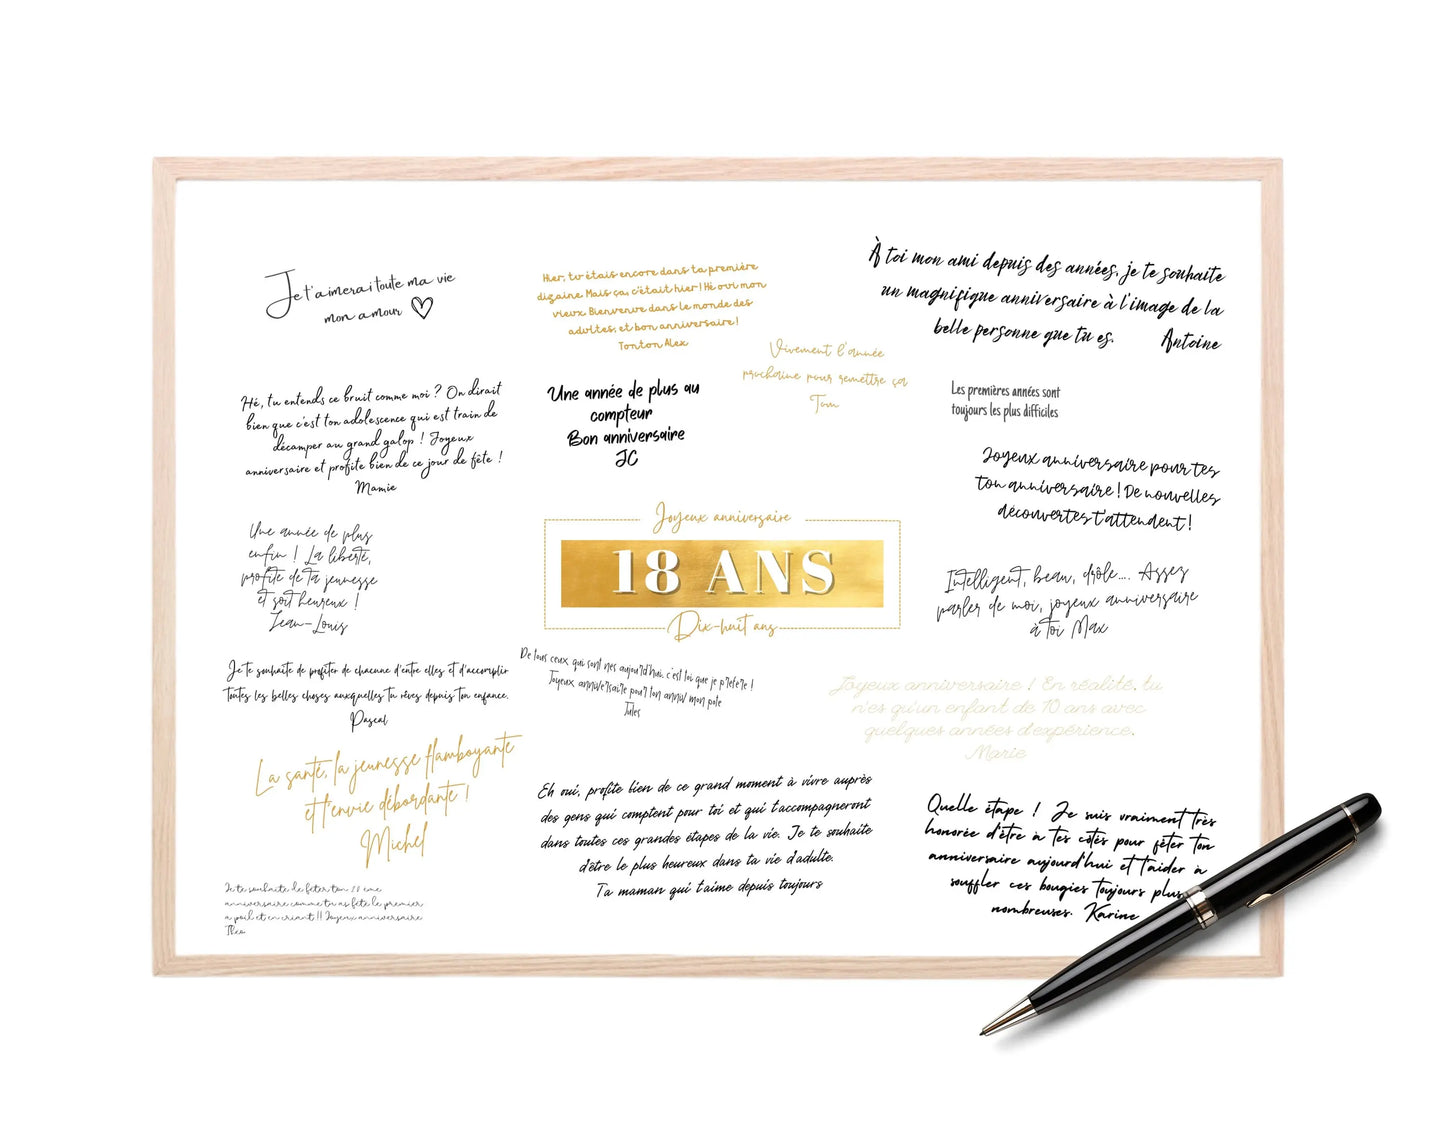 Je t'aimerai toute ma vie
mon amour
Hier, tu étais encore dans ta première
dizaine. Mais ça, c'était hier ! Hé oui mon
vieux. Bienvenue dans le monde des
adultes, et bon anniversaire !
Tonton Alex
À toi mon ami depuis des années, je te souhaite
un magnifique anniversaire à l'image de la
belle personne que tu es. Antoine
Vivement l'année
prochaine pour remettre ça
Tom
Hé, tu entends ce bruit comme moi ? On dirait
bien que c'est ton adolescence qui est train de
décamper au grand galop ! Joyeux
anniversaire et profite bien de ce jour de fête !
Mamie
Une année de plus au
compteur
Bon anniversaire
JC
Les premières années sont
toujours les plus difficiles
Joyeux anniversaire pour tes
ton anniversaire ! De nouvelles
découvertes t'attendent !
Une année de plus
enfin ! La liberté,
profite de ta jeunesse
et soit heureux !
Jean-Louis
Joyeux anniversaire
18 ANS
Dix-huit ans
Intelligent, beau, drôle.... Assez
parler de moi, joyeux anniversaire
à toi Max
Je te souhaite de profiter de chacune d'entre elles et d'accomplir
toutes les belles choses auxquelles tu rêves depuis ton enfance.
Pascal
De tous ceux qui sont nés aujourd'hui, c'est toi que je préfère !
Joyeux anniversaire pour ton anniv mon pote
Jules
Joyeux anniversaire ! En réalité, tu
n'es qu'un enfant de 10 ans avec
quelques années d'expérience.
Marie
La santé, la jeunesse flamboyante
et l'envie débordante !
Michel
Eh oui, profite bien de ce grand moment à vivre auprès
des gens qui comptent pour toi et qui t'accompagneront
dans toutes ces grandes étapes de la vie. Je te souhaite
d'être le plus heureux dans ta vie d'adulte.
Ta maman qui t'aime depuis toujours
Quelle étape ! Je suis vraiment très
honorée d'être à tes côtés pour fêter ton
anniversaire aujourd'hui et t'aider à
souffler ces bougies toujours plus
nombreuses. Karine
Je te souhaite de fêter ton eme
anniversaire comme tu as fêté le premier,
a poil et en criant !! Joyeux anniversaire